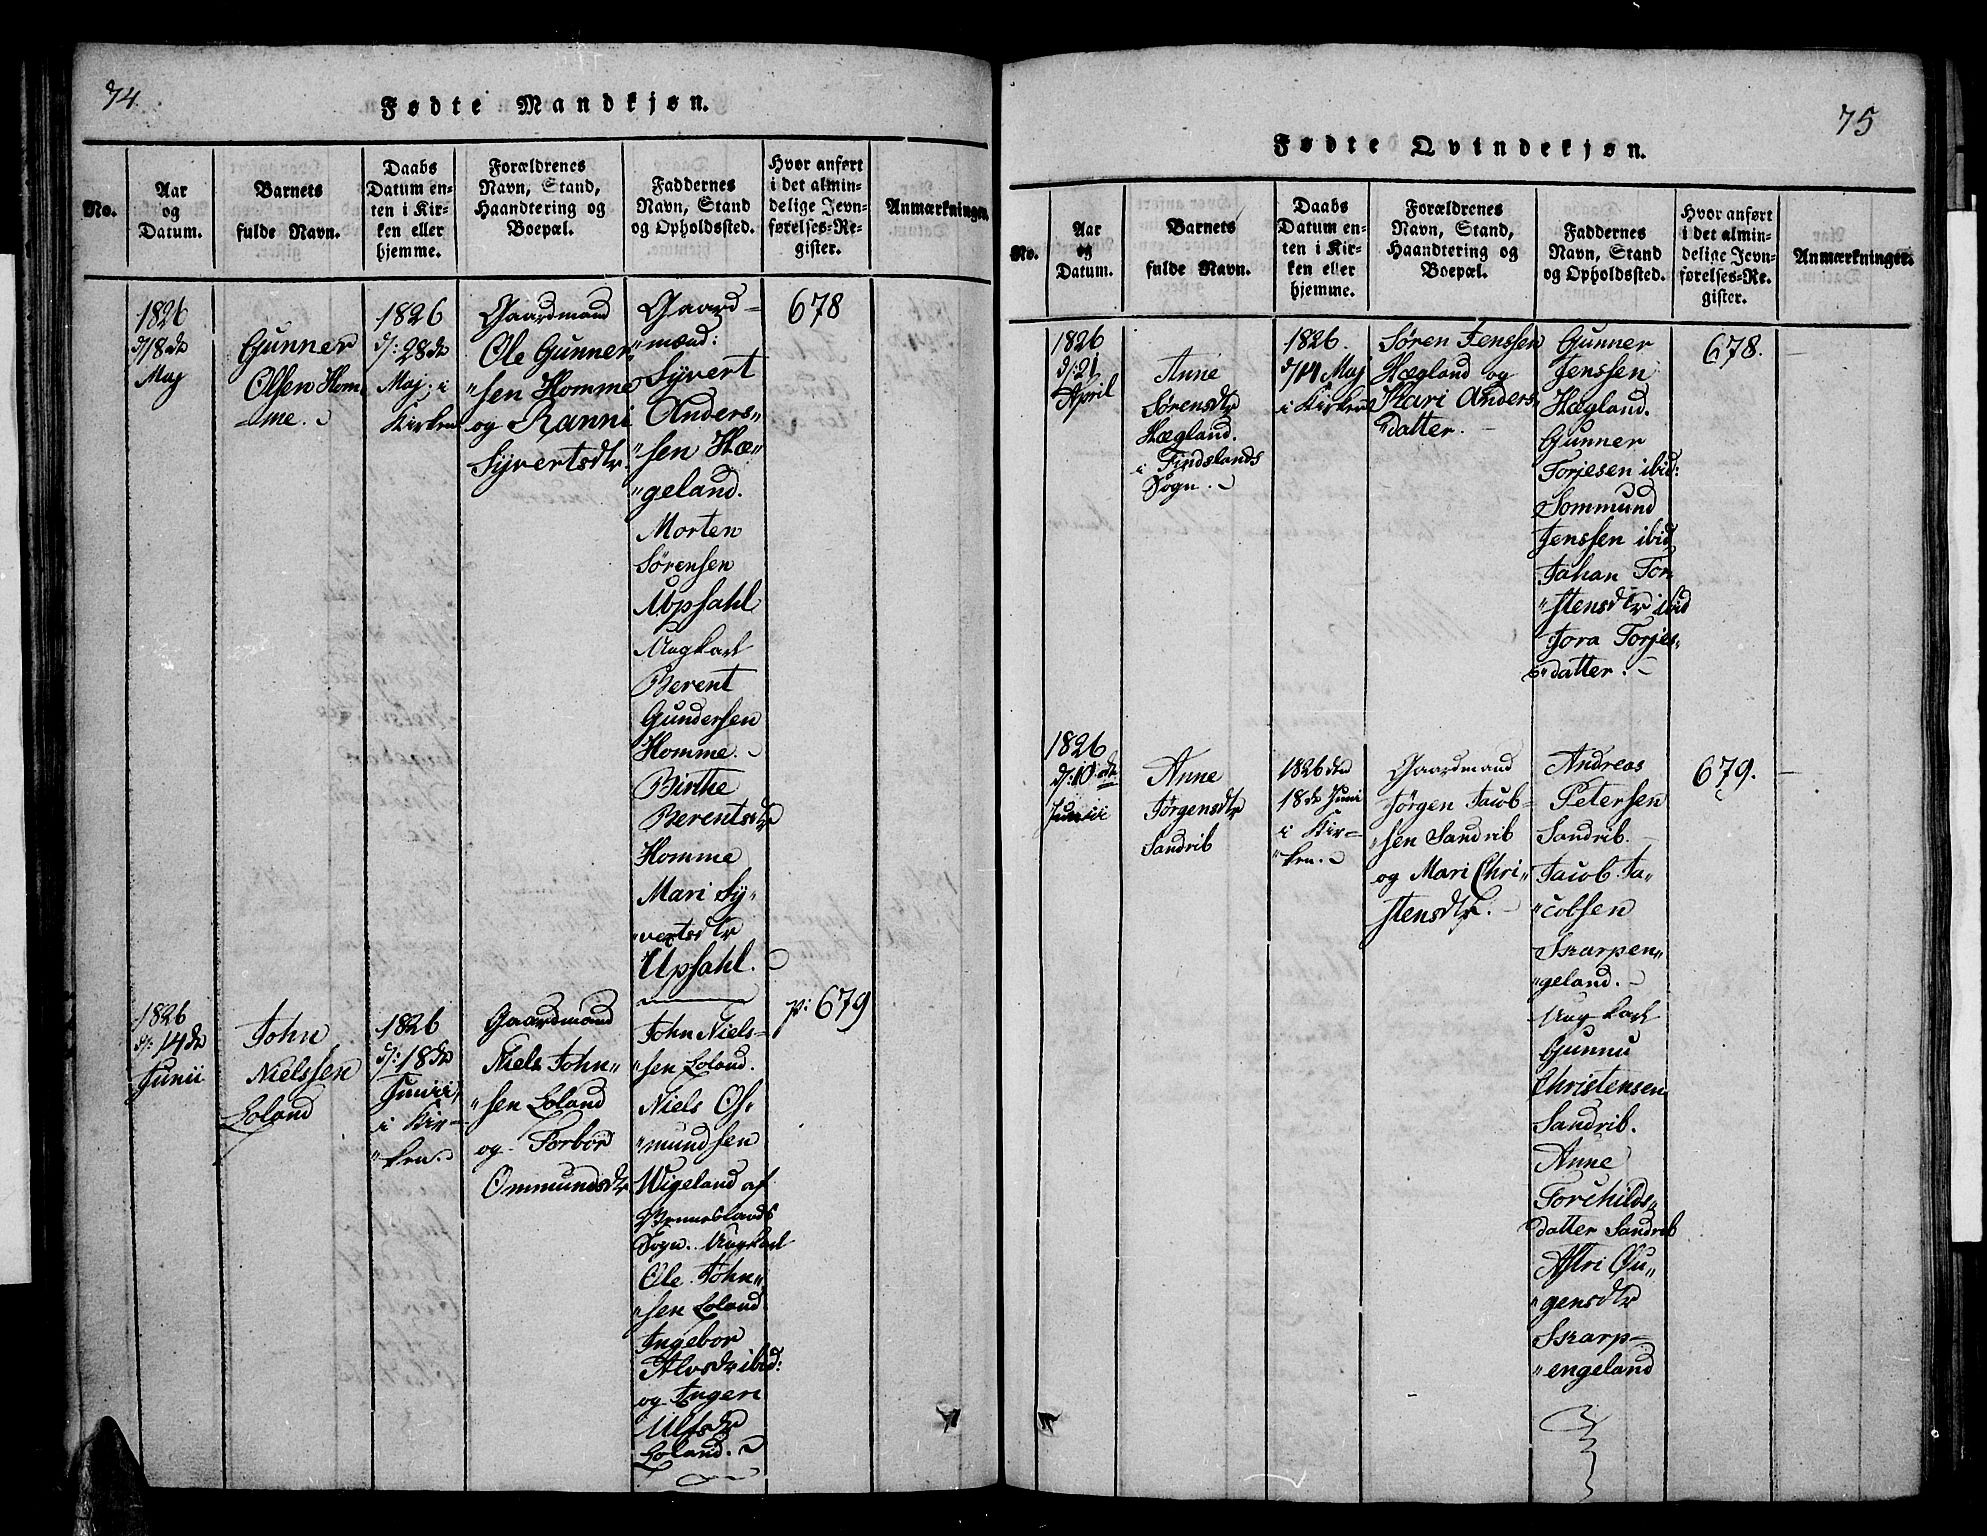 74.
Fødte Mandkjøn.
No.
Aar
og
Datum.
Barnets
fulde Navn.
Daabs
Datum en-
ten i Kir-
ken eller
hjemme.
Forældrenes
Navn, Stand,
Haandtering og
Boepæl.
Faddernes
Navn, Stand
og Opholdssted.
Hvor anført
i det almin-
delige Jevn-
førelses-Re-
gister.
Anmærkninger.
1826
d/18de
Maj
Gunner
Olsen Hom
me.
1826
d/: 28de
Maj i
Kirken
Gaardmand
Ole Gunner
"sen Homme
og Ranni
Syvertsdtr.
Gaard-
"mænd:
Syvert
Anders"
"sen Hæ"
"geland.
Morten
Sørensen
Upsahl
Ungkarl
Berent
Gundersen
Homme.
Birthe
Berentsdtr
Homme
Mari Sy"
"vertsdtr
Upsahl.
678
1826
d/: 14de
Junii
John
Nielssen
Loland
1826
d/: 18de
Junii,
i Kir-
"ken.
Gaardmand
Niels John"
"sen Loland
og Torbor
Ommundsdtr
John Niels-
"sen Loland.
Niels Os-
"mundsen
Wigeland af
Wenneslands
Sogn. Ungkarl
Ole John"
"sen Loland
Ingebor
Alvsdtr ibid:
og Ingeri
Ulfsdtr
Loland.
p: 679
75
Fødte Qvindekjøn.
No.
Aar
og
Datum.
Barnets
fulde Navn.
Daabs
Datum en-
ten i Kir-
ken eller
hjemme.
Forældrenes
Navn, Stand,
Haandtering og
Boepæl.
Faddernes
Navn, Stand
og Opholdssted.
Hvor anført
i det almin-
delige Jevn-
førelses-Re-
gister.
Anmærkninger.
1826
d/: 21
April
Anne
Sørensdtr
Hægland.
i Findslands
Sogn.
1826.
d/14 Maj
i Kirken
Søren Jenssen
Hægland og
Kari Anders-
"datter.
Gunner
Jenssen
Hægland.
Gunner
Torjesen ibid:
Sommund
Jenssen ibid
Johan Tor-
"stensdtr ibid
Jora Torjes-
"datter.
678.
1826
d/: 10de
Junii
Anne
Jørgensdtr
Sandrib
1826 den
18de Juni
i Kir-
"ken.
Gaardmand
Jørgen Jacob-
"sen Sandrib
og Mari Chri"
"stensdtr.
Andreas
Petersen
Sandrib.
Jacob Ja"
"cobsen
Skarpen"
"geland.
Ung karl
Gunnu
Christensen
Sandrib.
Anne
Torchilds"
datter Sandrib
Astri Øu"
"gensdtr
Skarp-
"engeland
679.